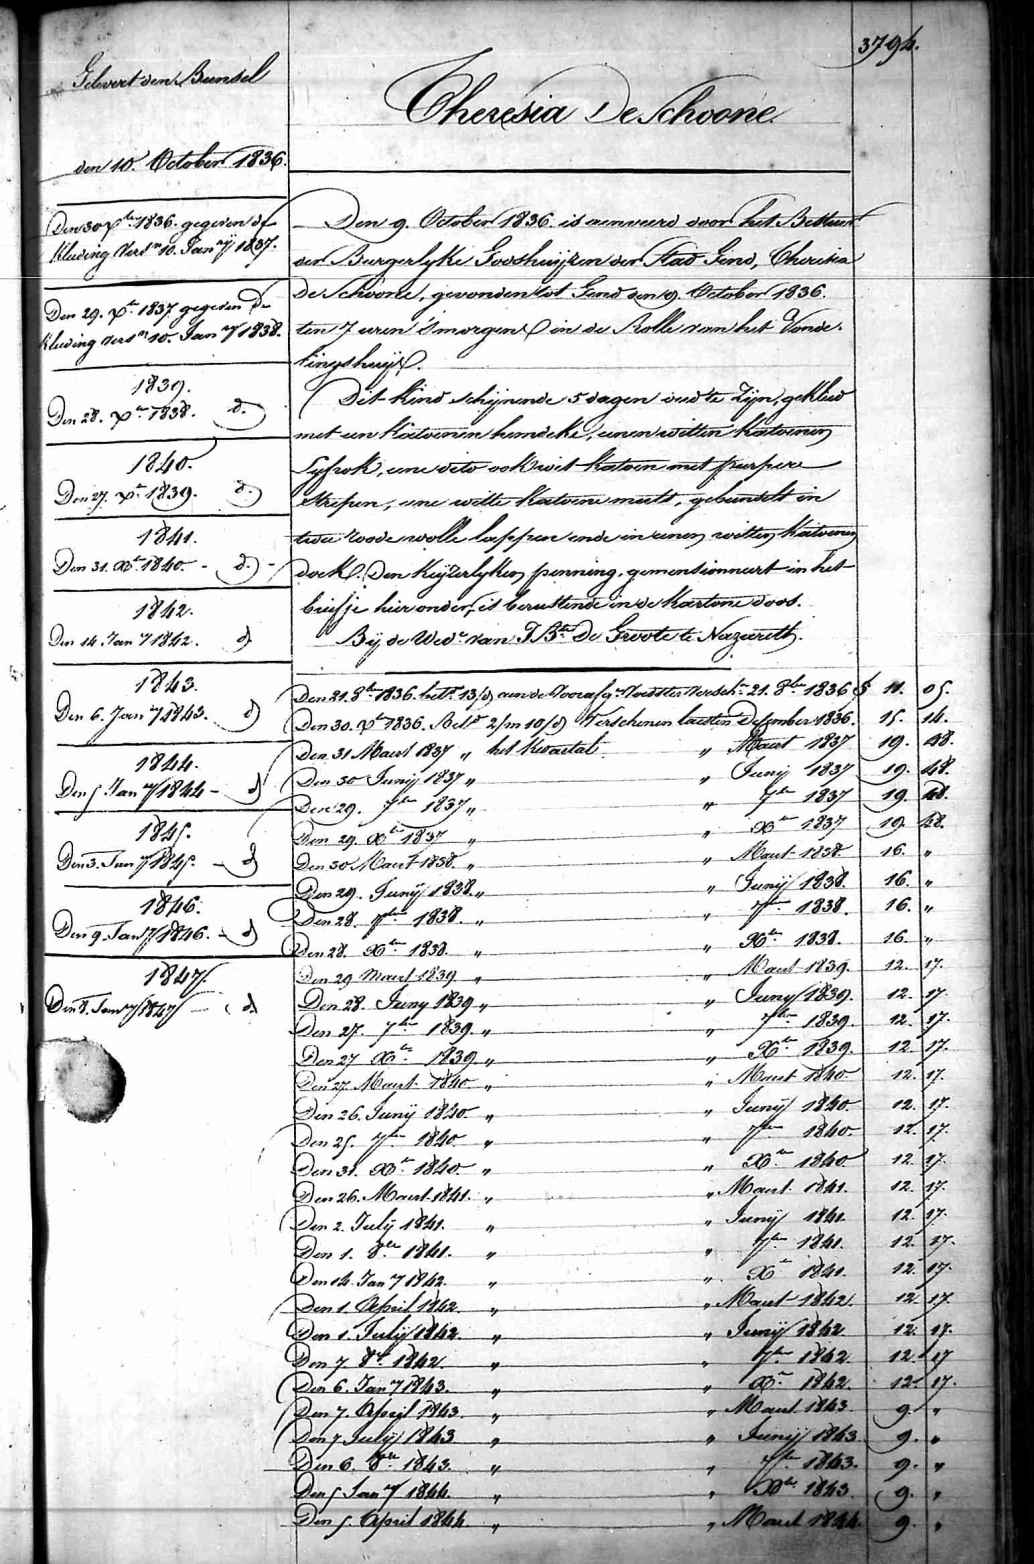 3794.
Theresia De Schoone.
Gelevert den Bundel
den 10. October 1836.
Den 30 Xbre 1836. gegeven de
kleeding Versn 10. Jany 1837.
Den 29. Xbre 1837 gegeven de
kleeding versn 10. Jany 1838.
1839.
Den 28. Xbre 1838. d.
1840.
Den 27. Xbre 1839. d.
1841.
Den 31. Xbre 1840. - d. -
1842.
Den 14 Jany 1842. d
1843.
Den 6. Jany 1843. d
1844.
Den 5 Jany 1844 - d
1845.
Den 3. Jany 1845. - d
1846.
Den 9. Jany 1846. - d
1847.
Den 8. Jany 1847 - d.
Den 9. October 1836. is aenveerd door het Bestuur
der Burgerlyke Godshuijzen der Stad Gend, Theresia
De Schoone, gevonden tot Gend den 9. October 1836.
ten 7 uren 's morgens in de Rolle van het Vonde-
lingshuijs.
Dit kind schijnende 5 dagen oud te zijn, gekleed
met een katoenen hemdeke, eenen witten katoenen
lyfrok, eene dito ook wit katoen met purpere
strepen, eene witte katoene muts, gebundelt in
twee roode wolle lappen ende in eenen witten katoenen
doek. Den keyzerlyken penning, gementionneert in het
briefje hieronder, is berustende in de kartone doos.
Bij de Wede van J. Bte De Groote te Nazareth.
Den 21. 8bre 1836. 13/d aen de Voedster Versch. 21. 8bre 1836 11. 05.
Den 30. Xbre 1836. 2/m 10/d Verschenen laetsten December 1836. 15. 14.
Den 31 Maert 1837 „ het kwartael „ Maert 1837 19. 48.
Den 30 Junij 1837 „ „ Junij 1837 19. 48.
Den 29. 7bre 1837 „ „ 7bre 1837 19. 48.
Den 29. Xbre 1837 „ „ Xbre 1837 19. 48.
Den 30 Maert 1838. „ „ Maert 1838 16. „
Den 29. Junij 1838. „ „ Junij 1838. 16. „
Den 28. 7bre 1838. „ „ 7bre 1838. 16. „
Den 28. Xbre 1838. „ „ Xbre 1838. 16. „
Den 29 Maert 1839 „ „ Maert 1839. 12. 17.
Den 28. Juny 1839 „ „ Juny 1839. 12. 17.
Den 27. 7bre 1839. „ „ 7bre 1839. 12. 17.
Den 27 Xbre 1839 „ „ Xbre 1839. 12. 17.
Den 27. Maert 1840. „ „ Maert 1840 12. 17.
Den 26. Junij 1840. „ „ Junij 1840. 12. 17.
Den 25. 7bre 1840. „ „ 7bre 1840. 12. 17.
Den 31. Xbre 1840. „ „ Xbre 1840 12. 17.
Den 26. Maert 1841. „ „ Maert 1841. 12. 17.
Den 2. Julij 1841. „ „ Junij 1841. 12. 17.
Den 1. 8bre 1841. „ „ 7bre 1841. 12. 17.
Den 14. Jany 1842. „ „ Xbre 1841. 12. 17.
Den 1. April 1842. „ „ Maert 1842. 12. 17.
Den 1. Julij 1842. „ „ Junij 1842 12. 17.
Den 7 8bre 1842. „ „ 7bre 1842. 12. 17
Den 6. Jany 1843. „ „ Xbre 1842. 12. 17.
Den 7. April 1843. „ „ Maert 1843. 9. „
Den 7 Julij 1843 „ „ Junij 1843 9. „
Den 6. 8bre 1843. „ „ 7bre 1843. 9. „
Den 5 Jany 1844. „ „ Xbre 1843. 9. „
Den 5. April 1844. „ „ Maert 1844. 9. „